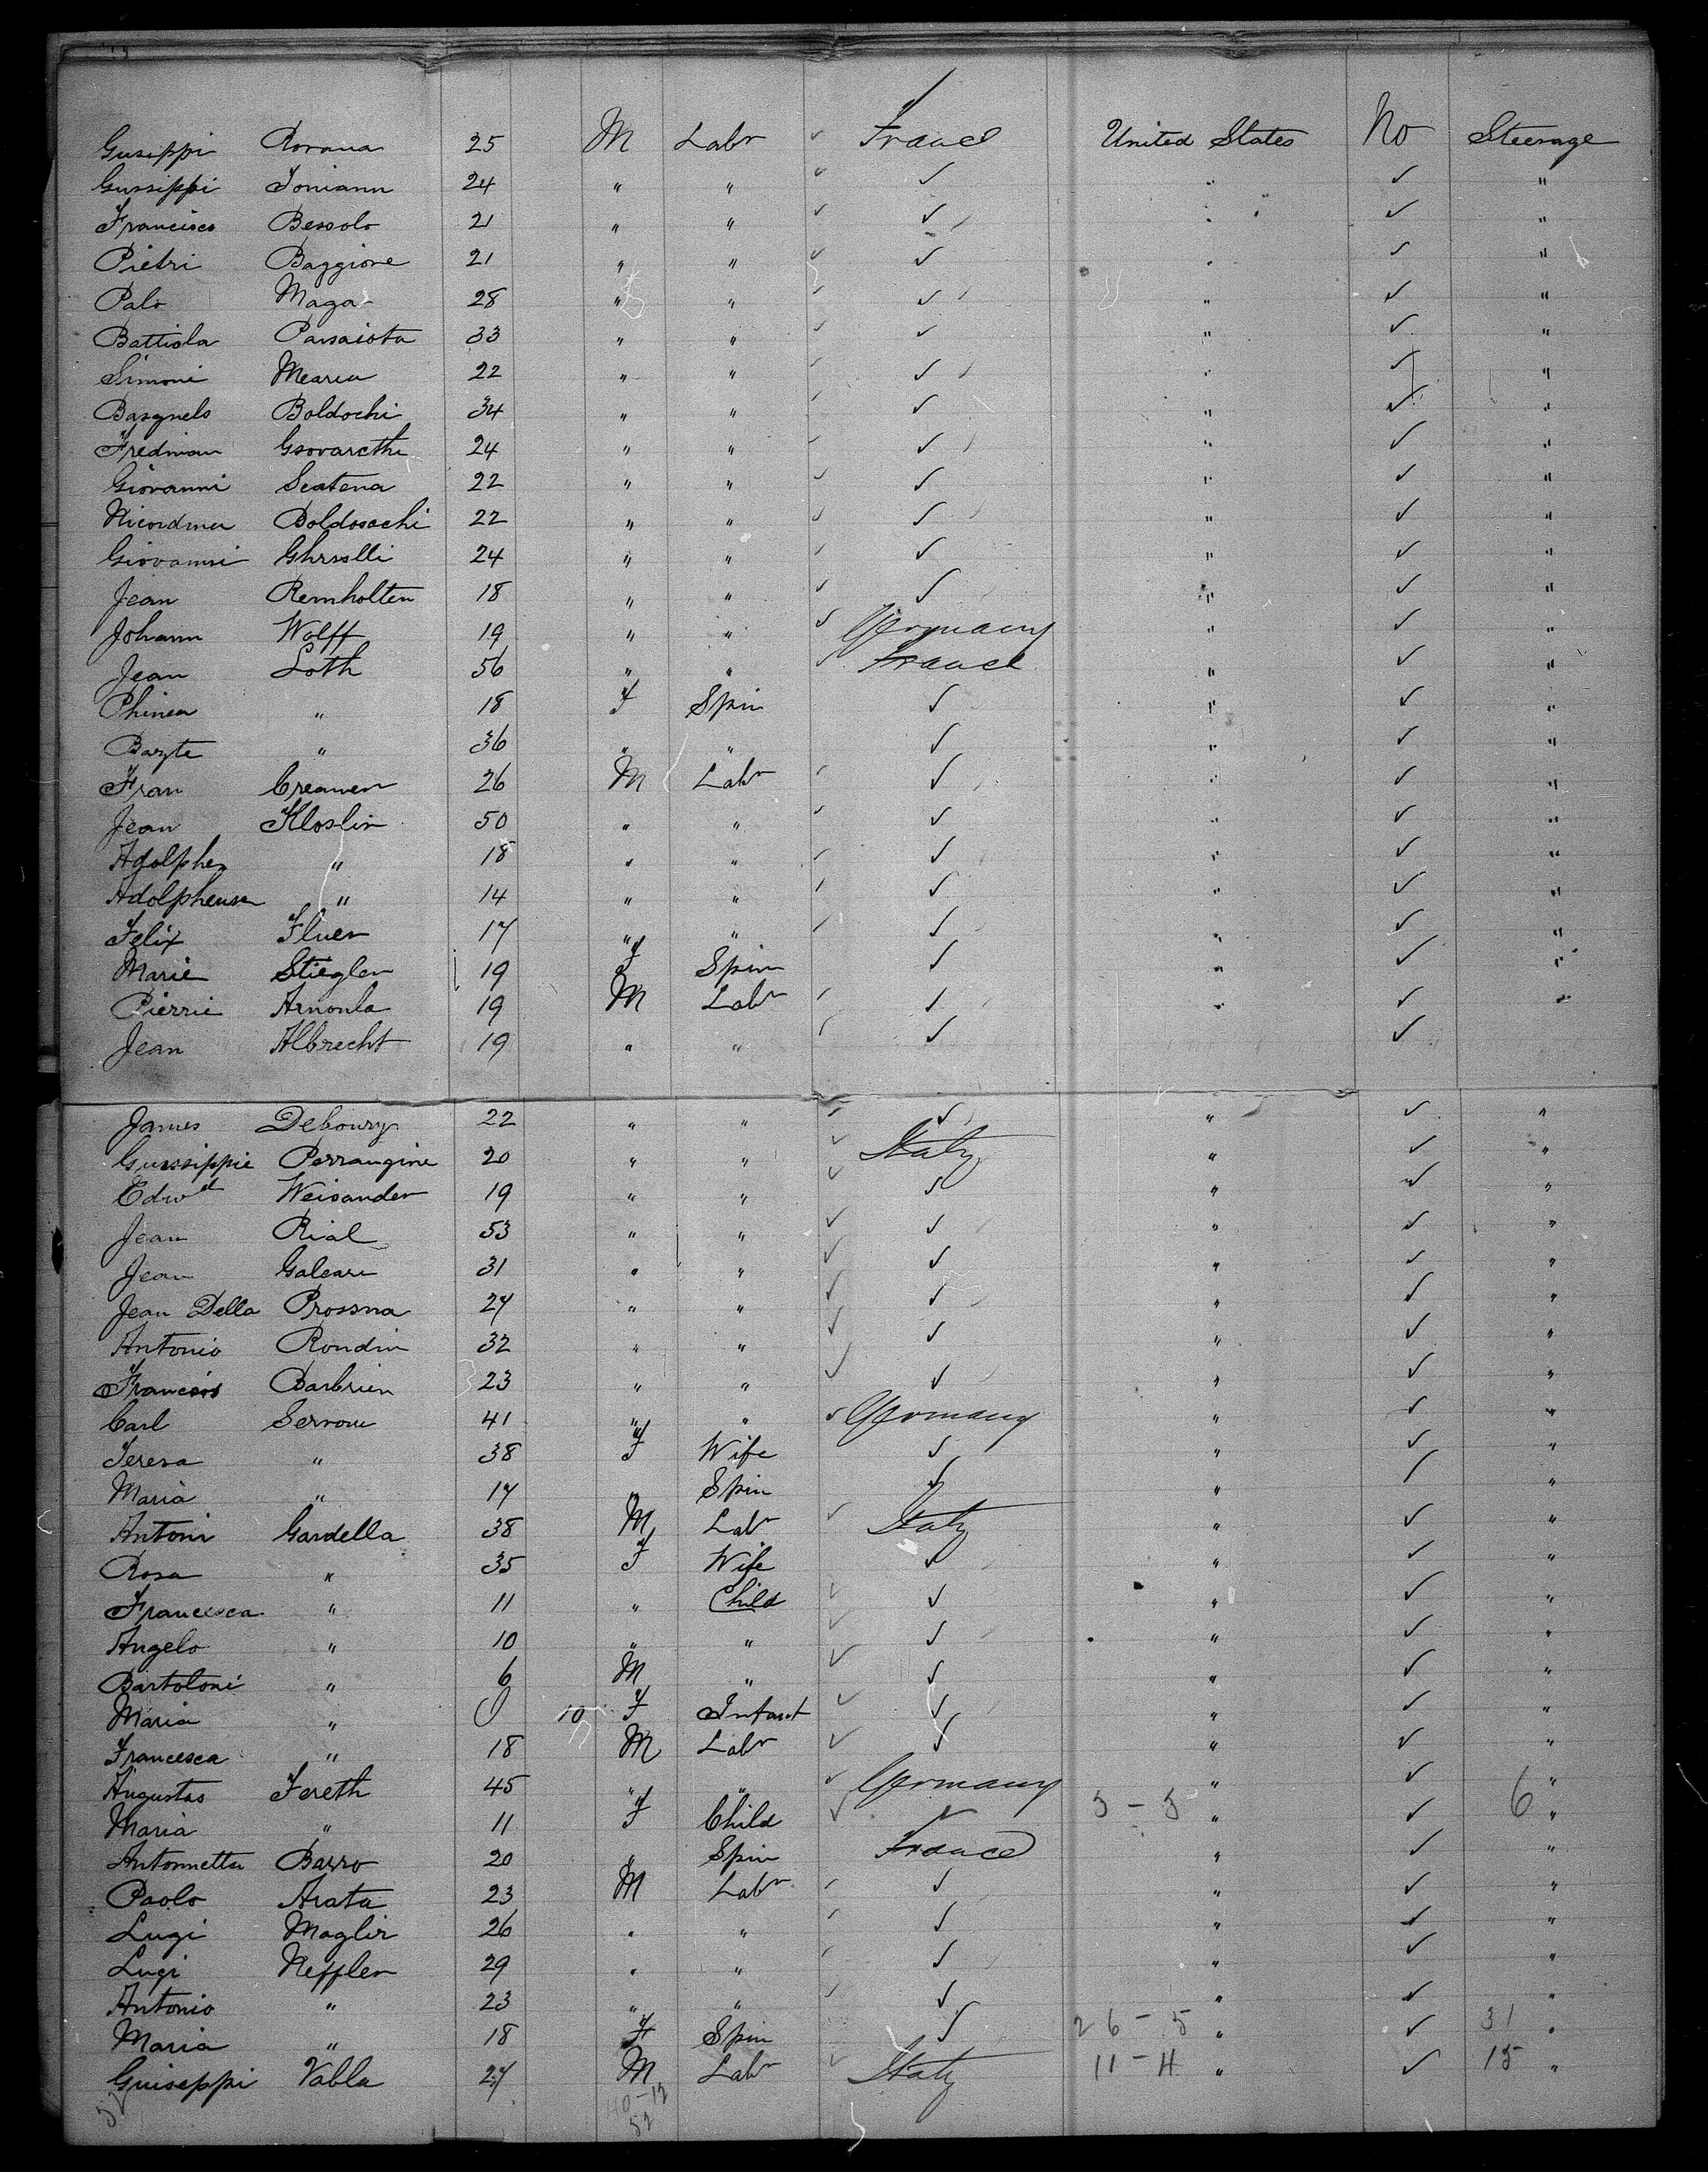 Gusippi Rovana 25 M Labr ✓ France United States No Steerage
Gussippi Toniann 24 " " ✓ ✓ " ✓ "
Francisco Bessolo 21 " " ✓ ✓ " ✓ "
Pietri Baggione 21 " " ✓ ✓ " ✓ "
Palo Maga 28 " " ✓ ✓ " ✓ "
Battista Parsaiota 33 " " ✓ ✓ " ✓ "
Simoni Mearia 22 " " ✓ ✓ " ✓ "
Basgnelo Boldochi 34 " " ✓ ✓ " ✓ "
Fredman Gsovarethi 24 " " ✓ ✓ " ✓ "
Giovanni Scatena 22 " " ✓ ✓ " ✓ "
Nicordma Boldosachi 22 " " ✓ ✓ " ✓ "
Giovanni Ghrsslli 24 " " ✓ ✓ " ✓ "
Jean Remholten 18 " " ✓ ✓ " ✓ "
Johann Wolff 19 " " ✓ Germany " ✓ "
Jean Loth 56 " " ✓ France " ✓ "
Phinea " 18 F Spin ✓ " ✓ "
Bazte " 36 " " ✓ " ✓ "
Fran Creamer 26 M Labr ✓ ✓ " ✓ "
Jean Kloslin 50 " " ✓ ✓ " ✓ "
Adolphe " 18 " " ✓ ✓ " ✓ "
Adolpheuse " 14 " " ✓ ✓ " ✓ "
Felix Fluer 17 " " ✓ ✓ " ✓ "
Marie Stiegler 19 F Spin ✓ " ✓ "
Pierrie Arnonla 19 M Labr ✓ ✓ " ✓ "
Jean Albrecht 19 " " ✓ ✓ ✓
James Deboury 22 " " ✓ ✓ " ✓ "
Gussippie Perrangine 20 " " ✓ Italy " ✓ "
Edwd Weisander 19 " " ✓ ✓ " ✓ "
Jean Rial 53 " " ✓ ✓ " ✓ "
Jean Galeari 31 " " ✓ ✓ " ✓ "
Jean Della Prossma 27 " " ✓ ✓ " ✓ "
Antonio Rondin 32 " " ✓ ✓ " ✓ "
Francois Barbrien 23 " " ✓ ✓ " ✓ "
Carl Servom 41 " " ✓ Germany " ✓ "
Teresa " 38 F Wife ✓ " ✓ "
Maria " 17 " Spin ✓ " ✓ "
Antoni Gardella 38 M Labr ✓ Italy " ✓ "
Rosa " 35 F Wife ✓ " ✓ "
Francesca " 11 " Child ✓ ✓ " ✓ "
Angelo " 10 " " ✓ ✓ " ✓ "
Bartoloni " 6 M " ✓ ✓ " ✓ "
Maria " 0 10 F Infant ✓ ✓ " ✓ "
Francesca " 18 M Labr ✓ ✓ " ✓ "
Augustas Fereth 45 " " ✓ Germany " ✓ "
Maria " 11 F Child ✓ ✓ 5 - 5 " ✓ 6 "
Antonnetta Barro 20 " Spin France " ✓ "
Paolo Arata 23 M Labr ✓ ✓ " ✓ "
Lugi Maglir 26 " " ✓ ✓ " ✓ "
Lugi Neffler 29 " " ✓ ✓ " ✓ "
Antonio " 23 " " ✓ ✓ " ✓ "
Maria " 18 F Spin ✓ 26 - 5 " ✓ 31 "
Guiseppi Vabla 27 M Labr ✓ Italy 11 - 4 " ✓ 15 "
52 40-12
52